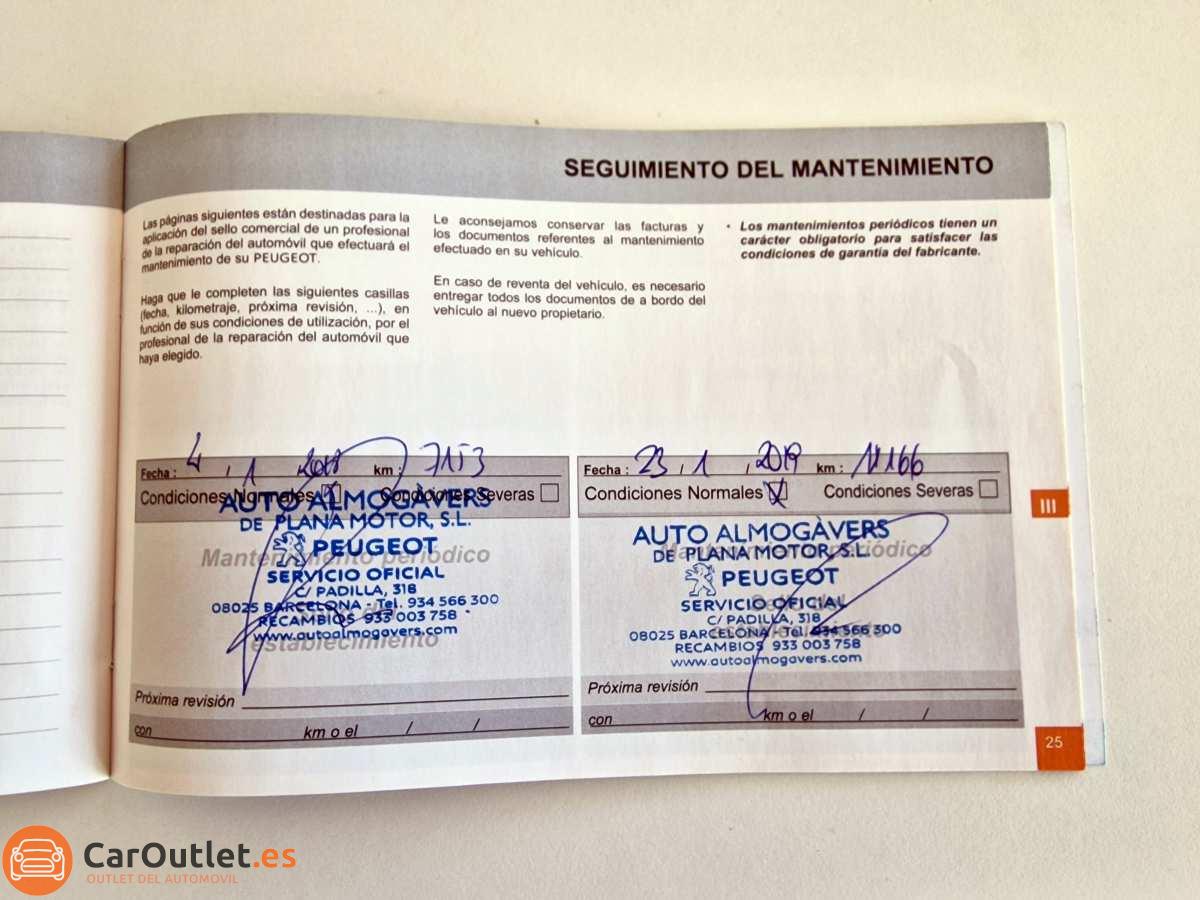 SEGUIMIENTO DEL MANTENIMIENTO
Las páginas siguientes están destinadas para la
aplicación del sello comercial de un profesional
de la reparación del automóvil que efectuará el
mantenimiento de su PEUGEOT.
Haga que le completen las siguientes casillas
(fecha, kilometraje, próxima revisión, ...), en
función de sus condiciones de utilización, por el
profesional de la reparación del automóvil que
haya elegido.
Le aconsejamos conservar las facturas y
los documentos referentes al mantenimiento
efectuado en su vehículo.
En caso de reventa del vehículo, es necesario
entregar todos los documentos de a bordo del
vehículo al nuevo propietario.
• Los mantenimientos periódicos tienen un
carácter obligatorio para satisfacer las
condiciones de garantía del fabricante.
Fecha : 4 / 1 / 2018 km : 7153
Condiciones Normales Condiciones Severas
AUTO ALMOGÀVERS
DE PLANA MOTOR, S.L.
PEUGEOT
Mantenimiento periódico
SERVICIO OFICIAL
C/ PADILLA, 318
08025 BARCELONA - Tel. 934 566 300
RECAMBIOS 933 003 758
www.autoalmogavers.com
establecimiento
Próxima revisión
con km o el / /
Fecha : 23 / 1 / 2019 km : 11166
Condiciones Normales Condiciones Severas
AUTO ALMOGÀVERS
DE PLANA MOTOR, S.L.
Mantenimiento periódico
PEUGEOT
SERVICIO OFICIAL
C/ PADILLA, 318
08025 BARCELONA - Tel. 934 566 300
RECAMBIOS 933 003 758
www.autoalmogavers.com
Próxima revisión
con km o el / /
III
25
CarOutlet.es
OUTLET DEL AUTOMOVIL